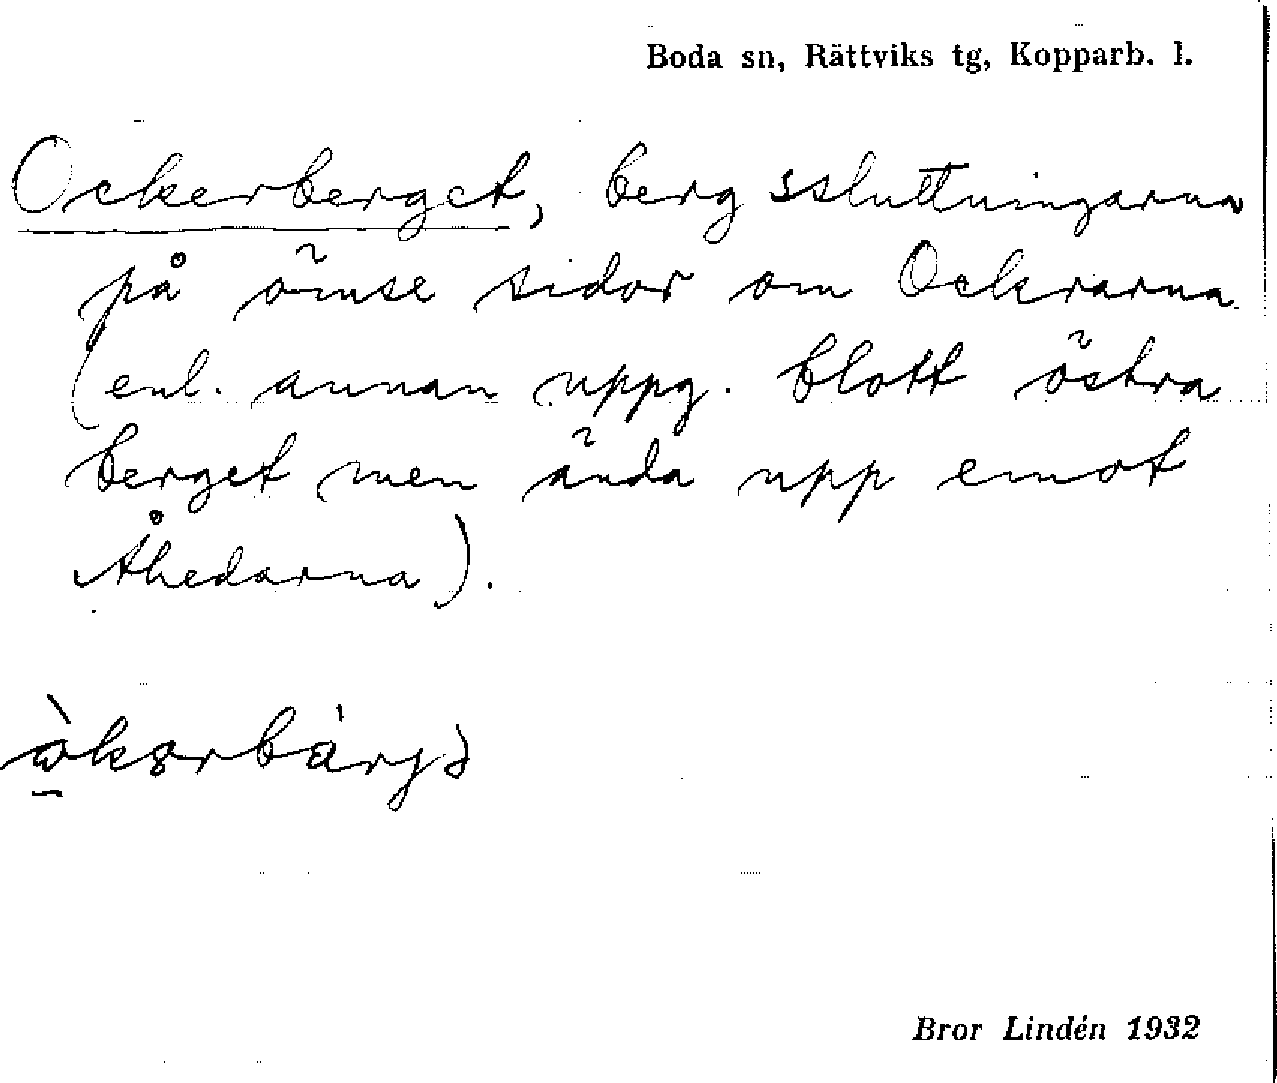 Boda sn, Rättviks tg, Kopparb. l.
Ockerberget, bergssluttningarna
på ömse sidor om Ockrarna
(enl. annan uppg. blott östra
berget men ända upp emot
Åhedarna).
Bror Lindén 1932